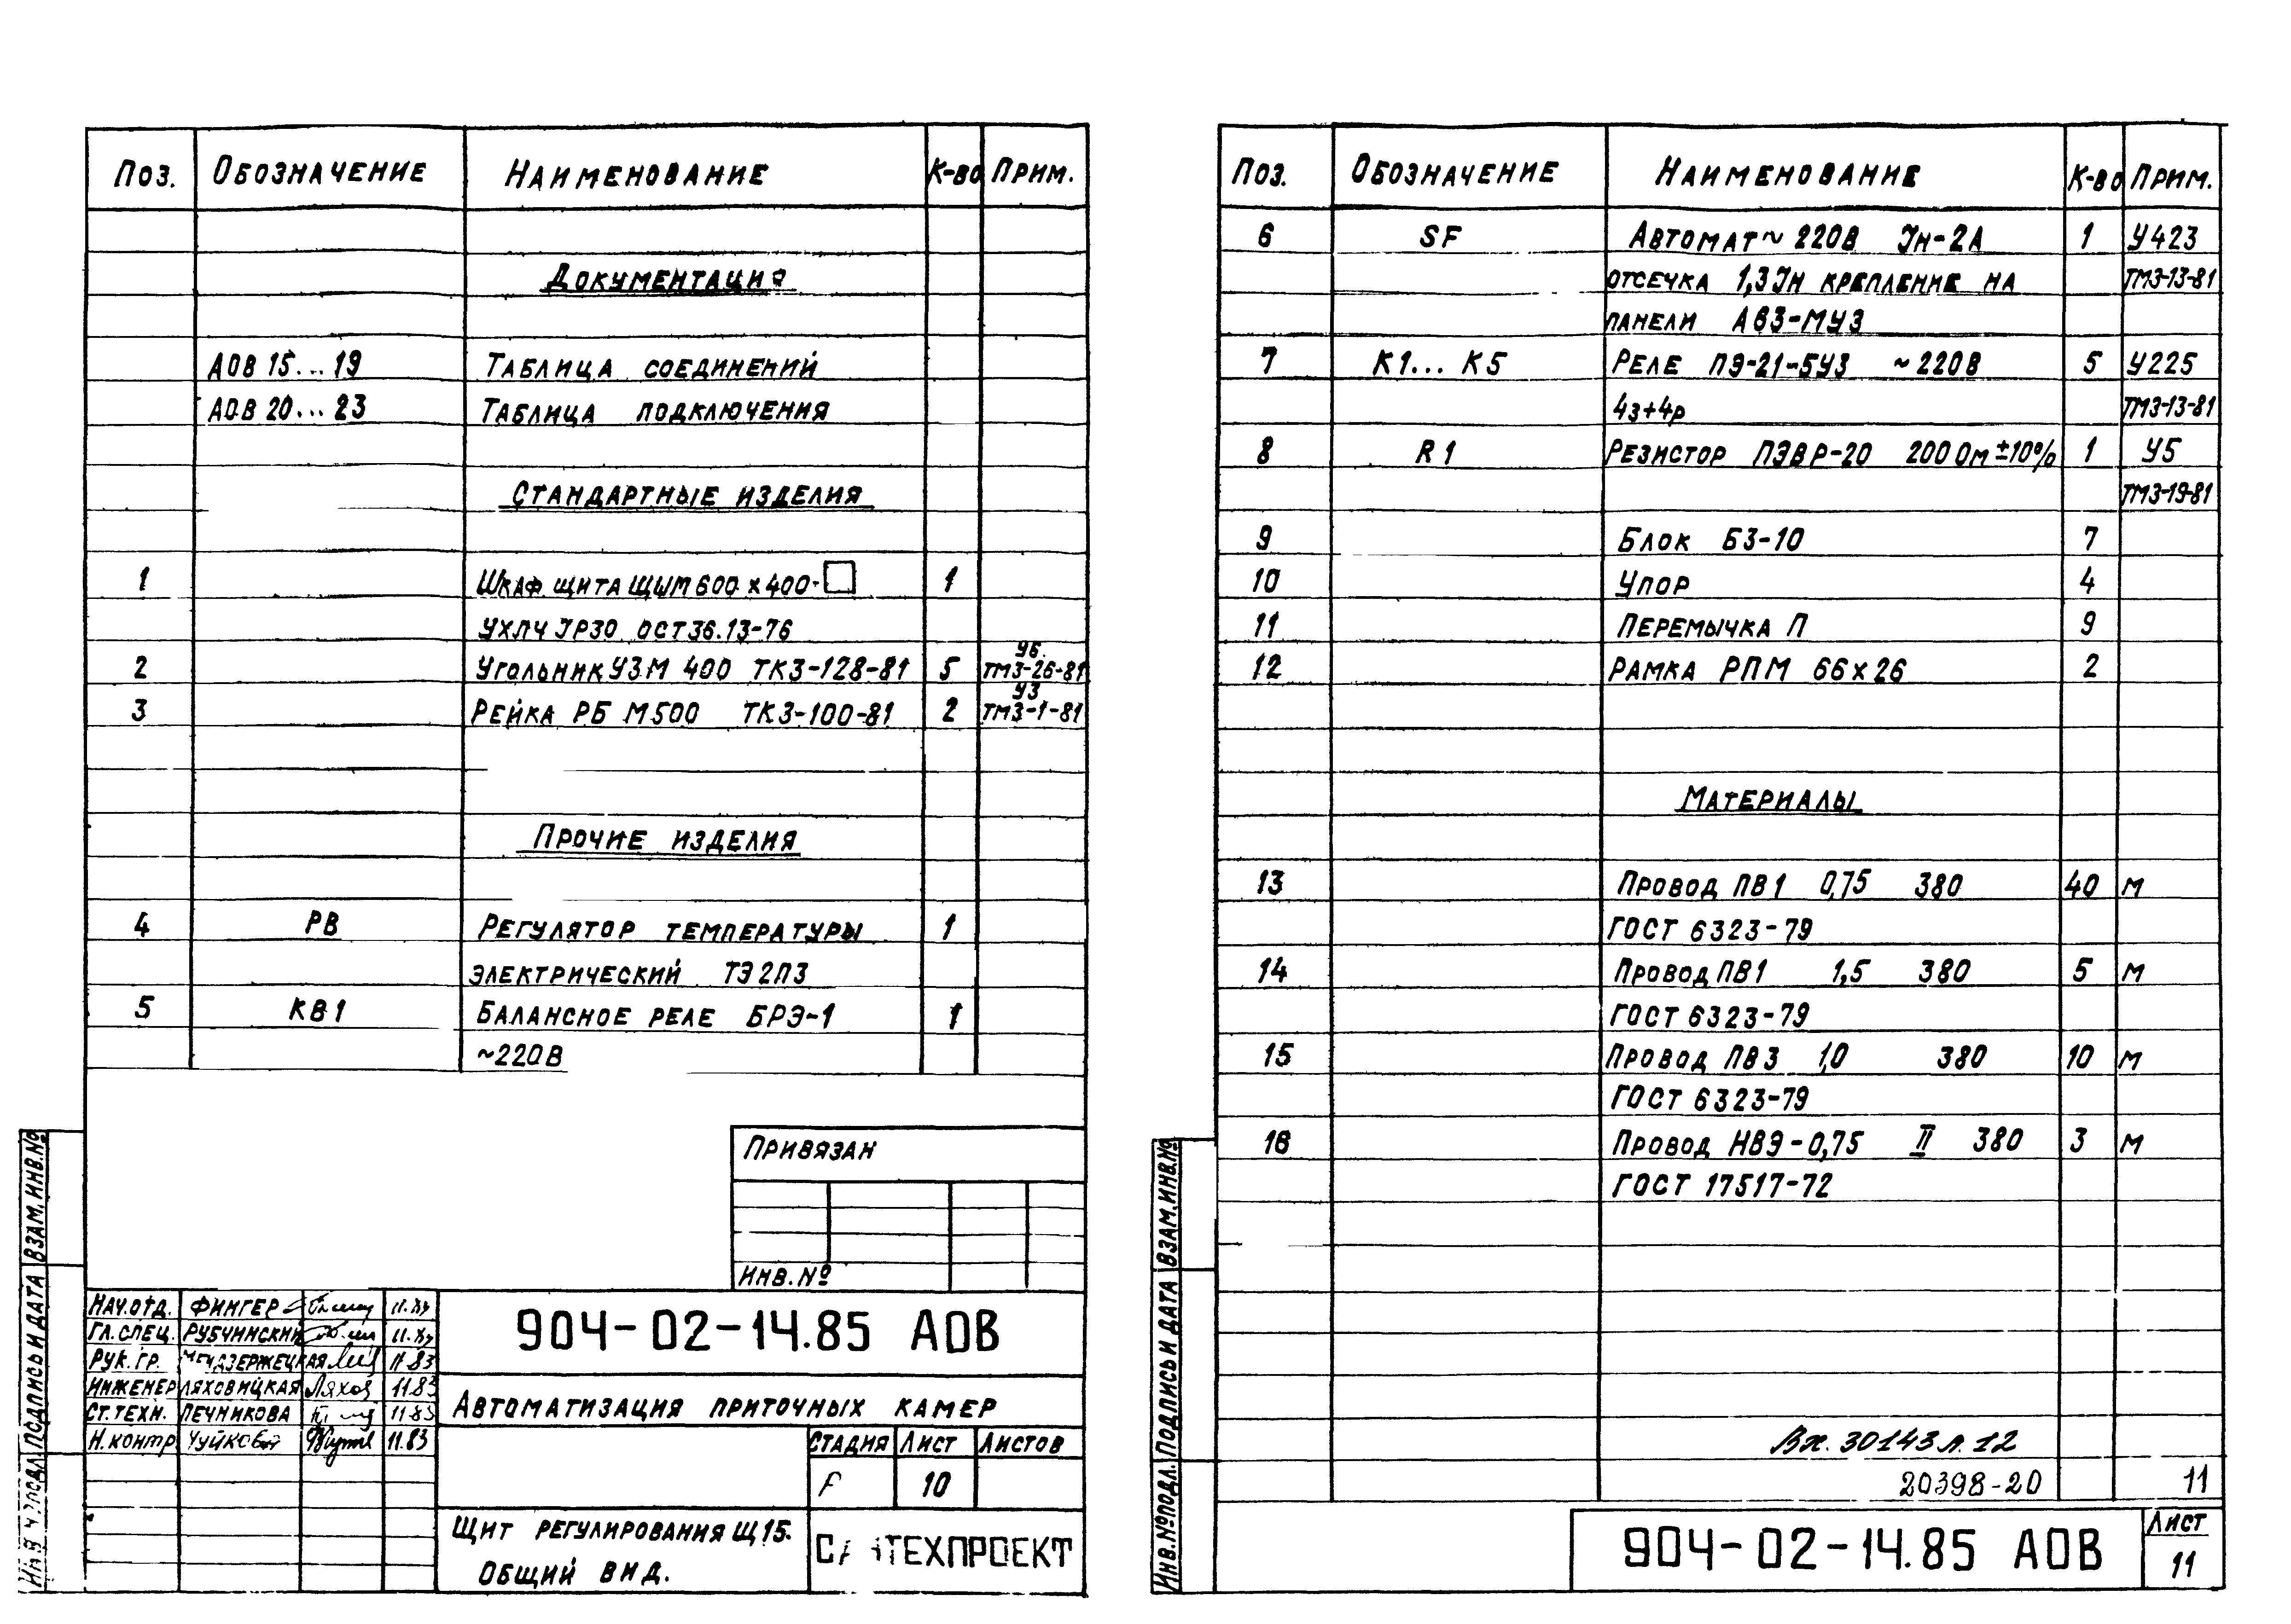 Поз. Обозначение Наименование К-во Прим.
Документация
АОВ 15...19 Таблица соединений
АОВ 20...23 Таблица подключения
Стандартные изделия
1 Шкаф щита ЩШМ 600 х 400-□ 1
УХЛЧ IP30 ОСТ 36.13-76
У6.
2 Угольник УЗМ 400 ТК3-128-81 5 ТМ3-26-81
У3
3 Рейка РБ М500 ТК3-100-81 2 ТМ3-1-81
Прочие изделия
4 РВ Регулятор температуры 1
электрический ТЭ2П3
5 КВ1 Балансное реле БРЭ-1 1
~220В
Привязан
Инв. №
Нач. отд. Фингер
Гл. спец. Рубчинский
Рук. гр. 11.83
Инженер Ляховицкая Ляхов 11.83
Ст. техн. Печникова 11.83
Н. контр Чуйкова 11.83
904-02-14.85 АОВ
Автоматизация приточных камер
Стадия Лист Листов
Р 10
Щит регулирования Щ15.
Общий вид.
САНТЕХПРОЕКТ
Взам. инв. №
Подпись и дата
Инв. № подл.
Поз. Обозначение Наименование К-во Прим.
6 SF Автомат ~ 220В Iн-2А 1 У423
отсечка 1,3 Iн крепление на ТМ3-13-81
панели А63-МУ3
7 К1... К5 Реле ПЭ-21-5У3 ~220В 5 У225
4з+4р ТМ3-13-81
8 R1 Резистор ПЭВР-20 200 Ом ±10% 1 У5
ТМ3-19-81
9 Блок БЗ-10 7
10 Упор 4
11 Перемычка П 9
12 Рамка РПМ 66х26 2
Материалы
13 Провод ПВ1 0,75 380 40 м
ГОСТ 6323-79
14 Провод ПВ1 1,5 380 5 м
ГОСТ 6323-79
15 Провод ПВ3 1,0 380 10 м
ГОСТ 6323-79
16 Провод НВЭ-0,75 II 380 3 м
ГОСТ 17517-72
Вх. 30143 л. 12
20398-20 11
904-02-14.85 АОВ
Лист
11
Взам. инв. №
Подпись и дата
Инв. № подл.